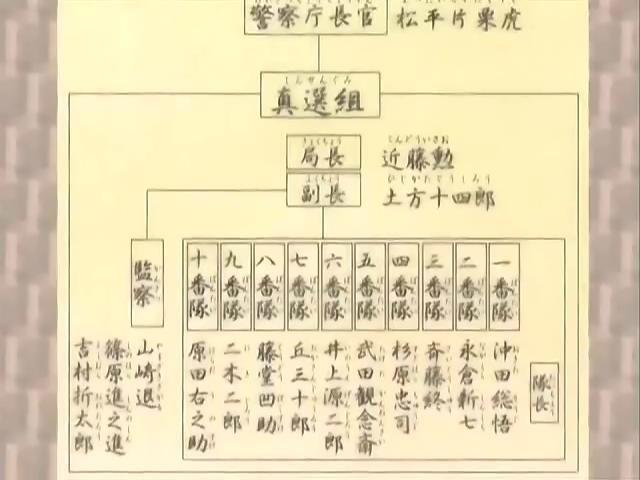 警察庁長官 松平片栗虎
真選組
しんせんぐみ
局長 近藤勲
副長 土方十四郎
隊長
一番隊 沖田総悟
二番隊 永倉新七
三番隊 斉藤終
四番隊 杉原忠司
五番隊 武田観念斎
六番隊 井上源二郎
七番隊 丘三十郎
八番隊 藤堂凹助
九番隊 二木二郎
十番隊 原田右之助
監察
山崎退
篠原進之進
吉村折太郎